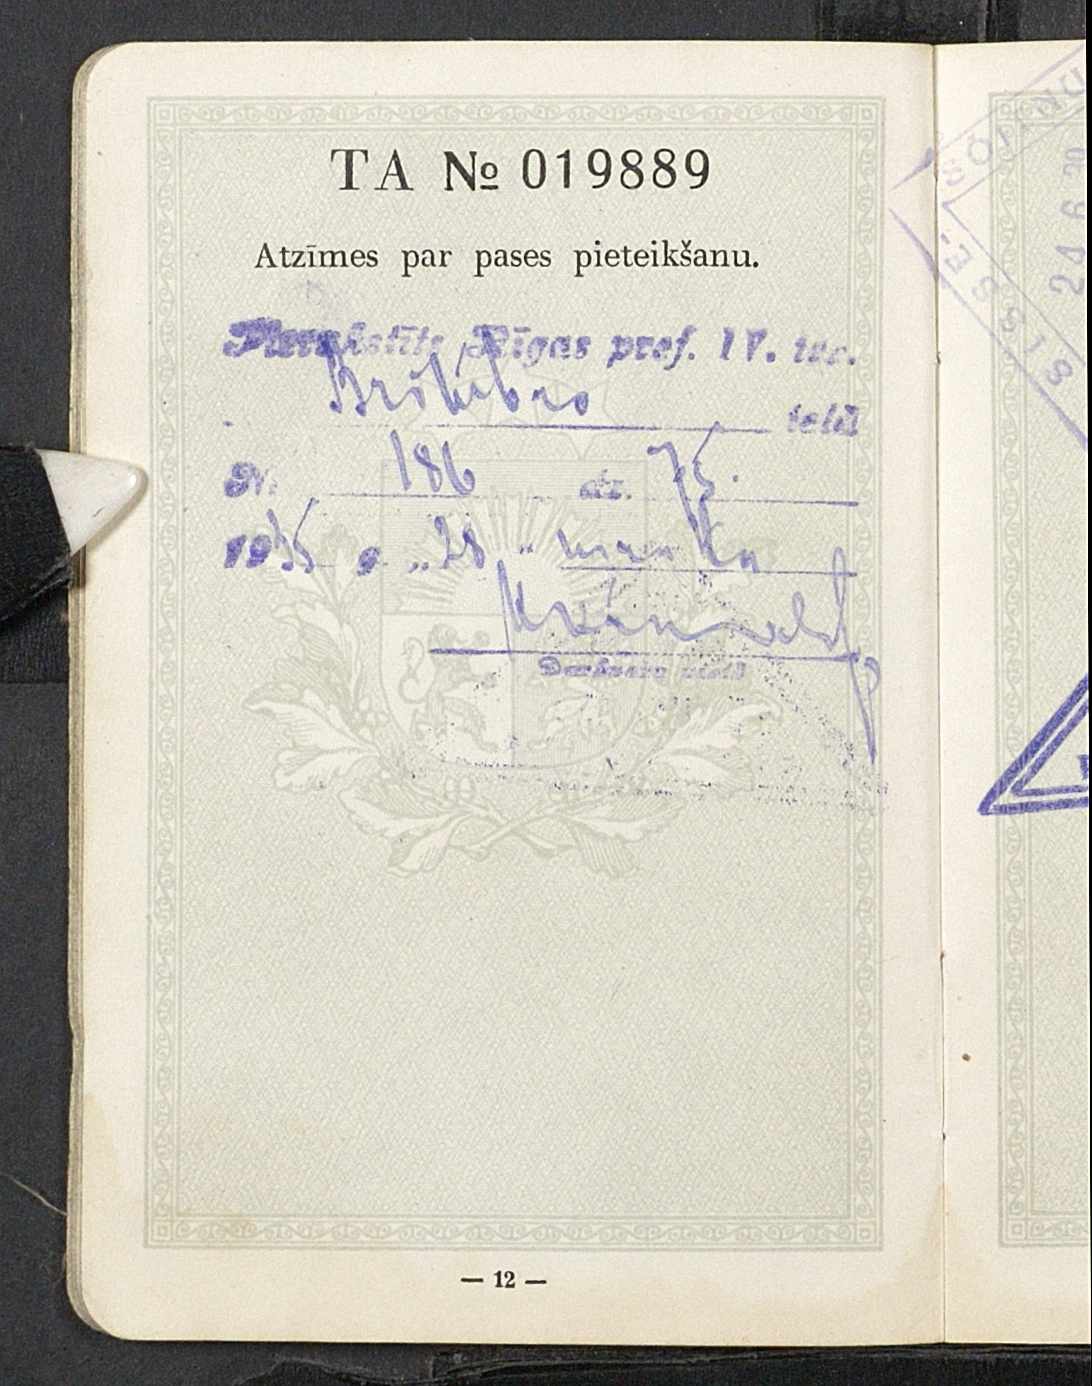 TA № 019889
Atzīmes par pases pieteikšanu.
Pierakstīts Rīgas pref. IV. iec.
Brīvības ielā
Nr. 186 dz. 75.
1935 g. „28 „
— 12 —
SISSE-
SÕIDNUD
24 6 39